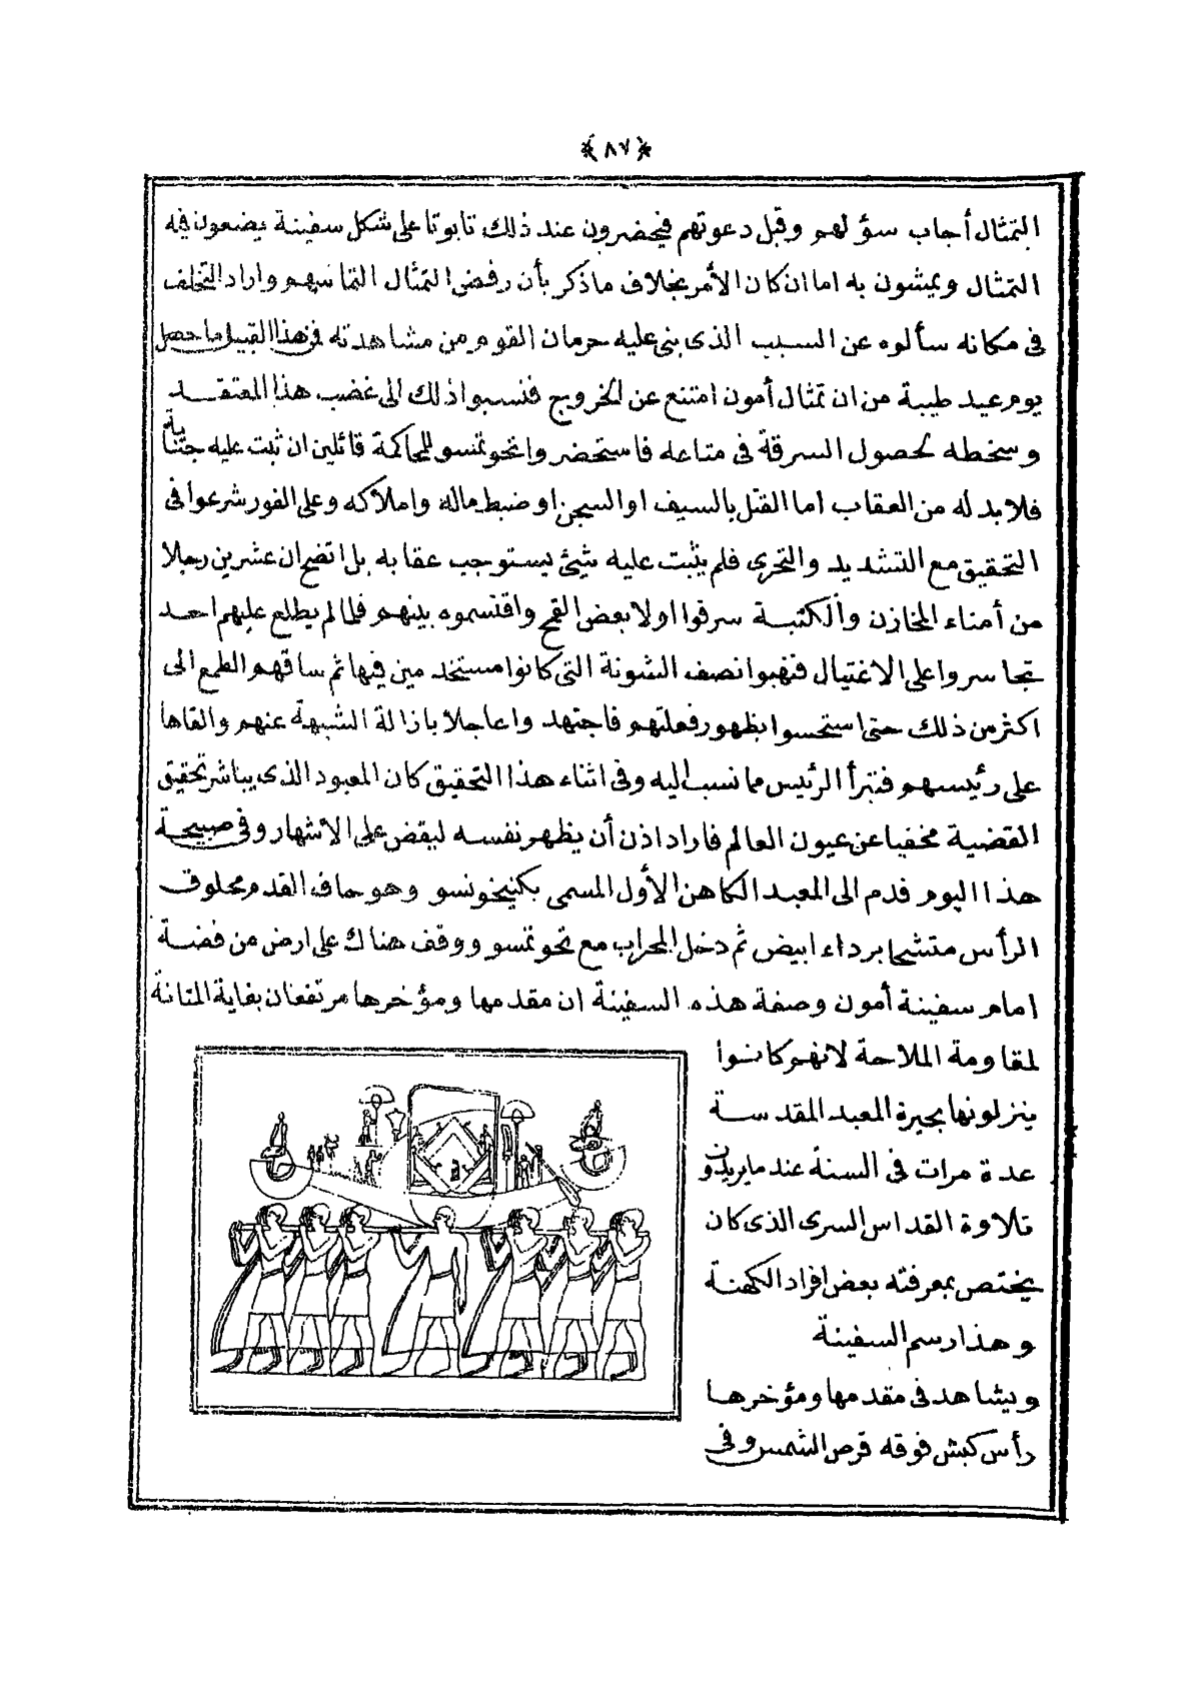 ﴿٨٧﴾
التمثال أجاب سؤلهم وقبل دعوتهم فيحضرون عند ذلك تابوتا على شكل سفينة يضعون فيه
التمثال ويمشون به اما ان كان الأمر بخلاف ماذكر بأن رفض التمثال التماسهم واراد التخلف
فى مكانه سألوه عن السبب الذى بنى عليه حرمان القوم من مشاهدته فمن هذا القبيل ما حصل
يوم عيد طيبة من ان تمثال أمون امتنع عن الخروج فنسبوا ذلك الى غضب هذا المعتقد
وسخطه لحصول السرقة فى متاعه فاستحضروا تحوتمسو للمحاكمة قائلين ان ثبت عليه جناية
فلابد له من العقاب اما القتل بالسيف او السجن او ضبط ماله واملاكه وعلى الفور شرعوا فى
التحقيق مع التشديد والتحرى فلم يثبت عليه شيئ يستوجب عقابه بل اتضح ان عشرين رجلا
من أمناء المخازن والكتبة سرقوا اولا بعض القمح واقتسموه بينهم فلما لم يطلع عليهم احد
تجاسروا على الاغتيال فنهبوا نصف الشونة التى كانوا مستخدمين فيها ثم ساقهم الطمع الى
اكثر من ذلك حتى استحسوا بظهور فعلتهم فاجتهدوا عاجلا بازالة الشبهة عنهم والقاها
على رئيسهم فتبرأ الرئيس مما نسب اليه وفى اثناء هذا التحقيق كان المعبود الذى يباشر تحقيق
القضية مخفيا عن عيون العالم فاراد اذن أن يظهر نفسه ليقض على الاشهار وفى صبيحة
هذا اليوم قدم الى المعبد الكاهن الأول المسمى بكنيخونسو وهو حاف القدم محلوق
الرأس متشحا برداء ابيض ثم دخل المحراب مع تحوتمسو ووقف هناك على ارض من فضة
امام سفينة أمون وصفة هذه السفينة ان مقدمها ومؤخرها مرتفعان بغاية المتانة
لمقاومة الملاحة لانهم كانوا
ينزلونها بحيرة المعبد المقدسة
عدة مرات فى السنة عند مايريدون
تلاوة القداس السرى الذى كان
يختص بمعرفته بعض افراد الكهنة
وهذا رسم السفينة
ويشاهد فى مقدمها ومؤخرها
رأس كبش فوقه قرص الشمس وفى